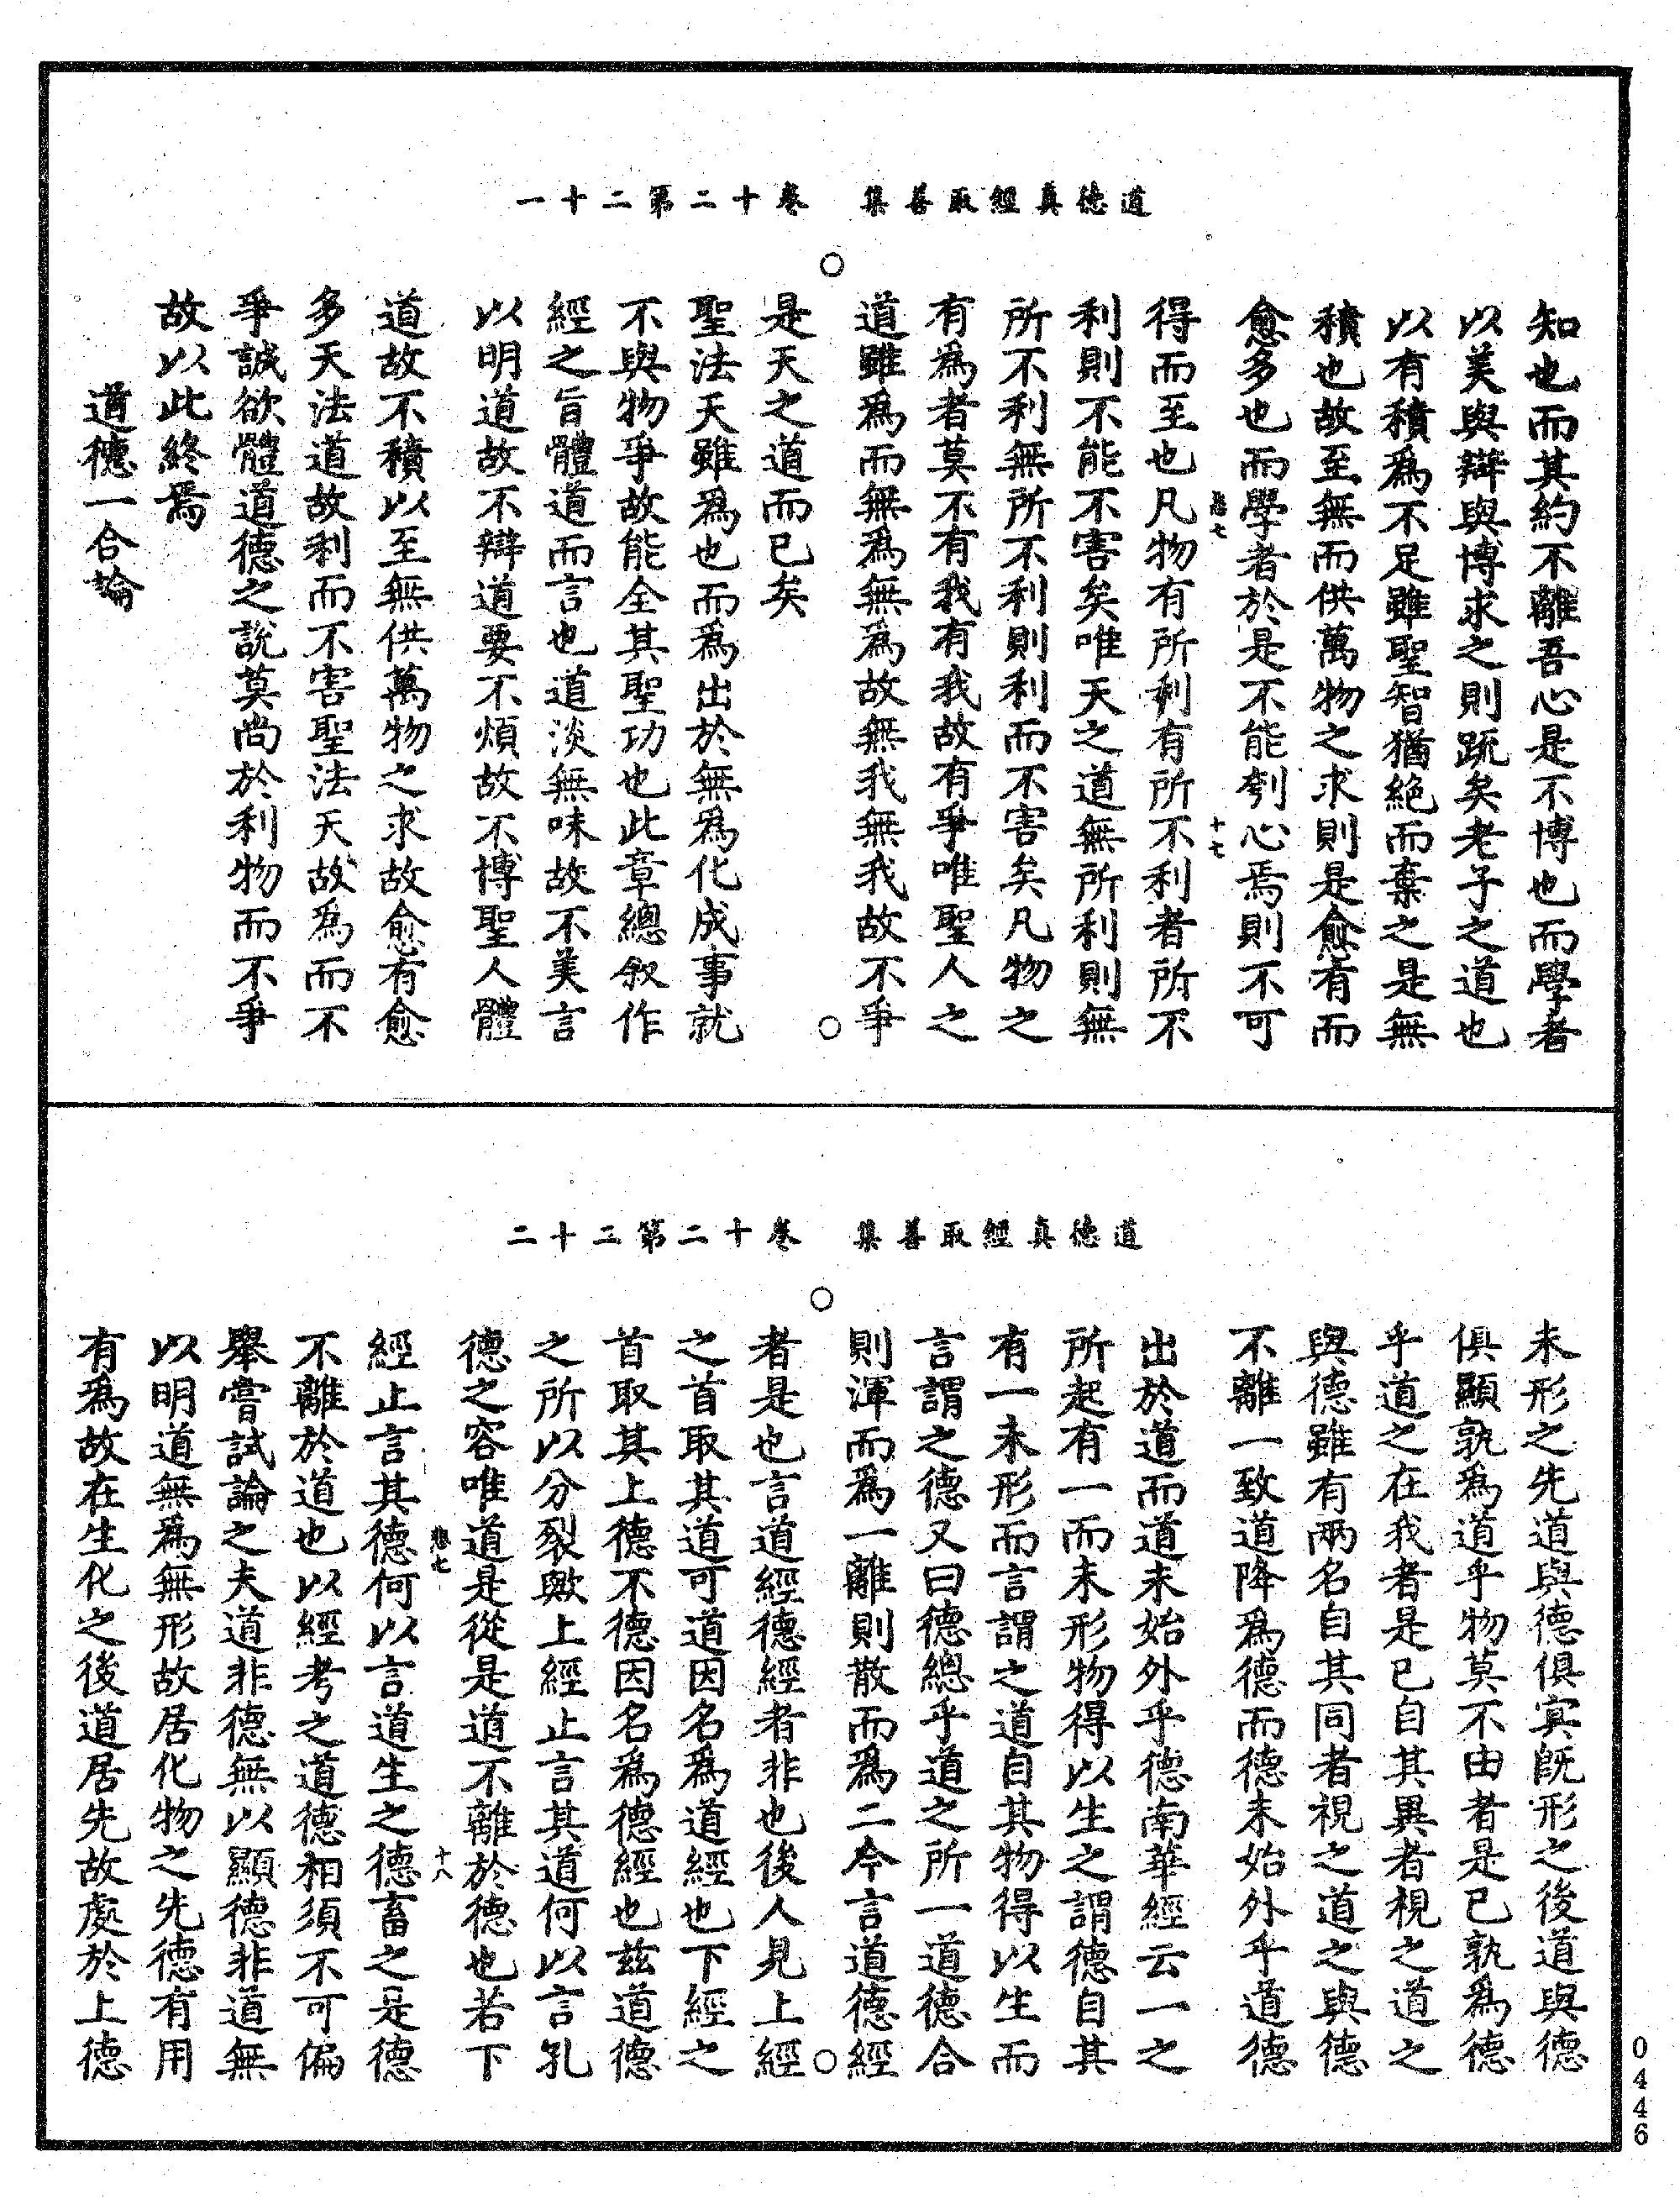 道德真經取善集　卷十二第二十一
知也而其約不離吾心是不博也而學者
以美與辯與博求之則䟽矣老子之道也
以有積爲不足雖聖智猶絕而棄之是無
積也故至無而供萬物之求則是愈有而
愈多也而學者於是不能刳心焉則不可
卷七　十七
得而至也凡物有所利有所不利者所不
利則不能不害矣唯天之道無所利則無
所不利無所不利則利而不害矣凡物之
有爲者莫不有我有我故有爭唯聖人之
道雖爲而無爲無爲故無我無我故不爭
是天之道而已矣
聖法天雖爲也而爲出於無爲化成事就
不與物爭故能全其聖功也此章總叙作
經之旨體道而言也道淡無味故不美言
以明道故不辯道要不煩故不博聖人體
道故不積以至無供萬物之求故愈有愈
多天法道故利而不害聖法天故爲而不
爭誠欲體道德之說莫尚於利物而不爭
故以此終焉
道德一合論
道德真經取善集　卷十二第二十二
未形之先道與德俱冥旣形之後道與德
俱顯孰爲道乎物莫不由者是已孰爲德
乎道之在我者是已自其異者視之道之
與德雖有兩名自其同者視之道之與德
不離一致道降爲德而德未始外乎道德
出於道而道未始外乎德南華經云一之
所起有一而未形物得以生之謂德自其
有一未形而言謂之道自其物得以生而
言謂之德又曰德總乎道之所一道德合
則渾而爲一離則散而爲二今言道德經
者是也言道經德經者非也後人見上經
之首取其道可道因名爲道經也下經之
首取其上德不德因名爲德經也兹道德
之所以分裂歟上經止言其道何以言孔
德之容唯道是從是道不離於德也若下
卷七　十八
經止言其德何以言道生之德畜之是德
不離於道也以經考之道德相須不可偏
舉嘗試論之夫道非德無以顯德非道無
以明道無爲無形故居化物之先德有用
有爲故在生化之後道居先故處於上德
0446